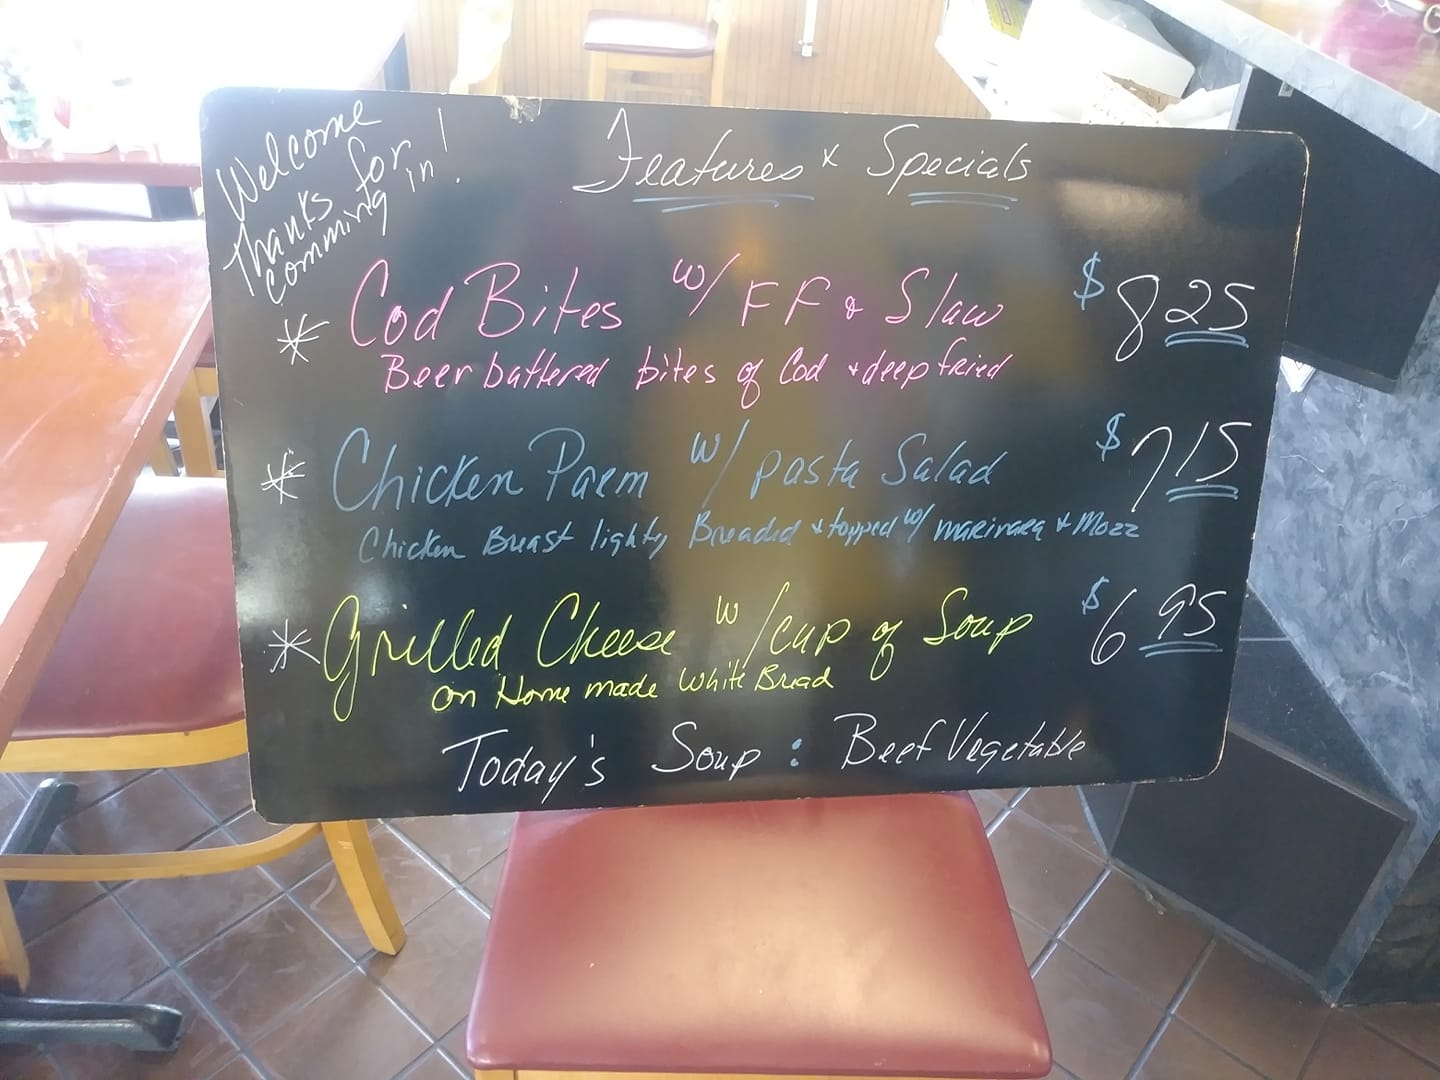 Welcome
Thanks for
comming in!
Features & Specials
* Cod Bites w/ FF & Slaw $8 25
Beer battered bites of Cod & deep fried
* Chicken Parm w/ pasta Salad $7 15
Chicken Breast lightly Breaded & topped w/ marinara & Mozz
* Grilled Cheese w/ cup of Soup $6 95
on Home made White Bread
Today's Soup: Beef Vegetable